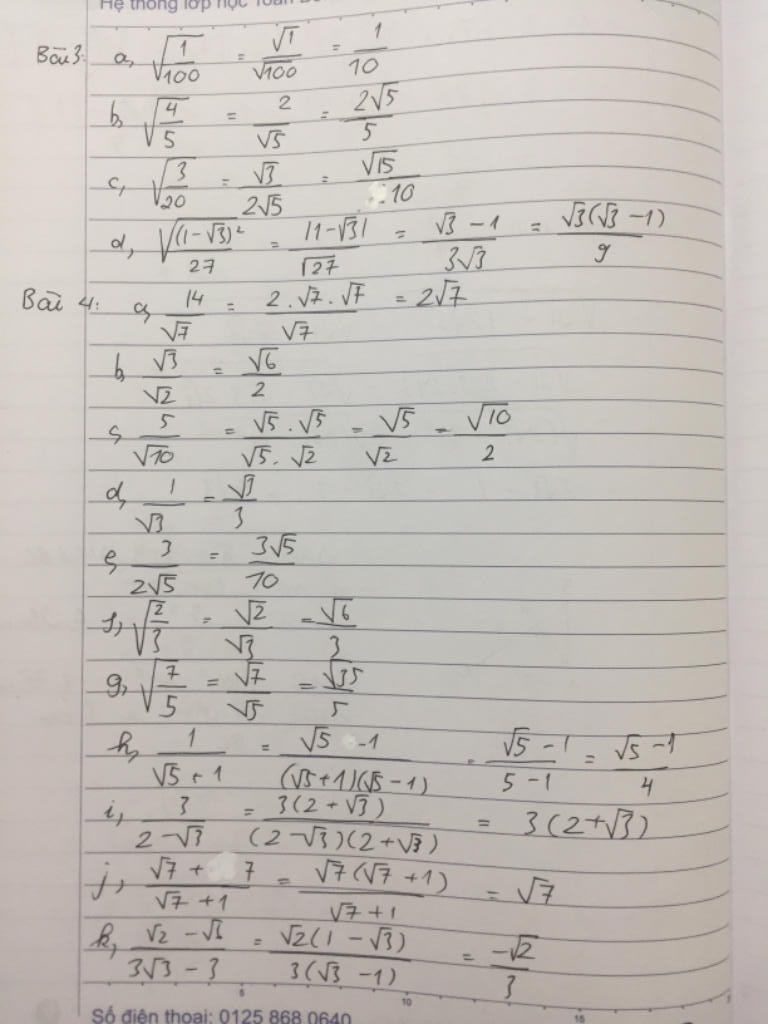 Hệ thống lớp học Toán
Bài 3: a, √(1/100) = √1/√100 = 1/10
b, √(4/5) = 2/√5 = 2√5/5
c, √(3/20) = √3/(2√5) = √15/10
d, √((1-√3)²/27) = |1-√3|/√27 = (√3-1)/(3√3) = √3(√3-1)/9
Bài 4: a, 14/√7 = (2.√7.√7)/√7 = 2√7
b, √3/√2 = √6/2
c, 5/√10 = (√5.√5)/(√5.√2) = √5/√2 = √10/2
d, 1/√3 = √3/3
e, 3/(2√5) = 3√5/10
f, √(2/3) = √2/√3 = √6/3
g, √(7/5) = √7/√5 = √35/5
h, 1/(√5+1) = (√5-1)/((√5+1)(√5-1)) = (√5-1)/(5-1) = (√5-1)/4
i, 3/(2-√3) = 3(2+√3)/((2-√3)(2+√3)) = 3(2+√3)
j, (√7+7)/(√7+1) = √7(√7+1)/(√7+1) = √7
k, (√2-√6)/(3√3-3) = √2(1-√3)/(3(√3-1)) = -√2/3
5 10 15
Số điện thoại: 0125 868 0640